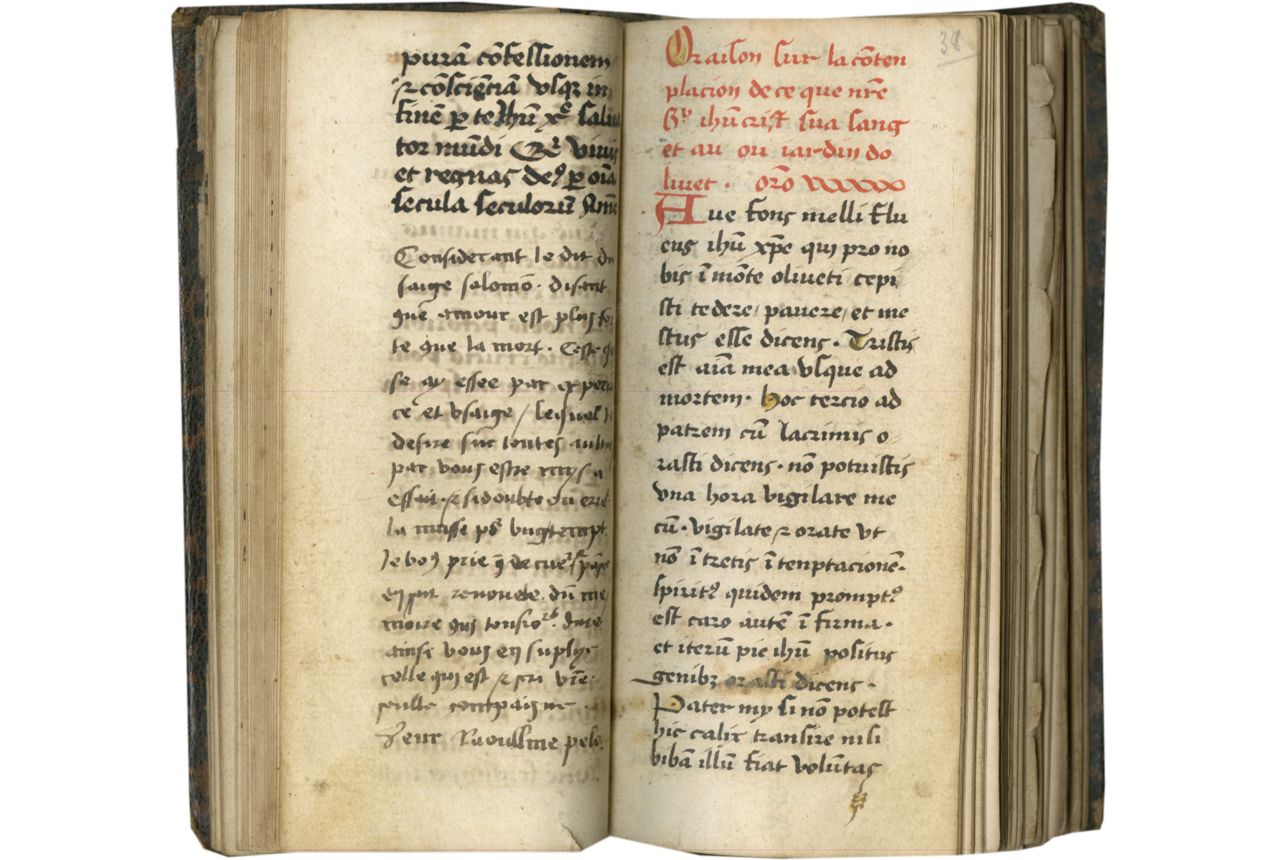 purā cōfessionem
⁊ cōsciētiā vsqꝫ in
finē ꝑ te Jhū xp̄e salua
tor mūdi Qͥ viuis
et regnas deꝰ ꝑ oīa
secula seculorū Amē
Considerant le dit du
saige salomō · disant
que amour est plus for
te que la mort · Ceste
se ay essee par experi
ce et vsaige / lequel Je
desire sur toutes aultre
par vous estre mys a
essait · ⁊ si doubte ou erre
la
Je voꝰ prie q̄ de
renouele · du me
moire qui
ainsi vous en suplye
celle qui est ⁊ vr̄e
seulle compaigne ·
Jeur Raoulline pelo
38
Oraison sur la cōten
placion de ce que nr̄e
Sʳ ihūcrist sua sang
et au ou iardin do
liuet · orō
Aue fons melli flu
eus ihū xp̄e qui pro no
bis ī mōte oliueti cepi
sti tedere / pauere / et me
stus esse dicens · Tristis
est aīa mea vsque ad
mortem · hoc tercio ad
patrem cū lacrimis o
rasti dicens · nō potuistis
vna hora vigilare me
cū · vigilate ⁊ orate vt
nō ītretis ī temptacionē ·
spiritꝰ quidem promptꝰ
est caro autē ī firma ·
et iterū pie ihū positus
genibꝫ orasti dicens ·
Pater my si nō potest
hic calix transire nisi
bibā illū fiat volūtas